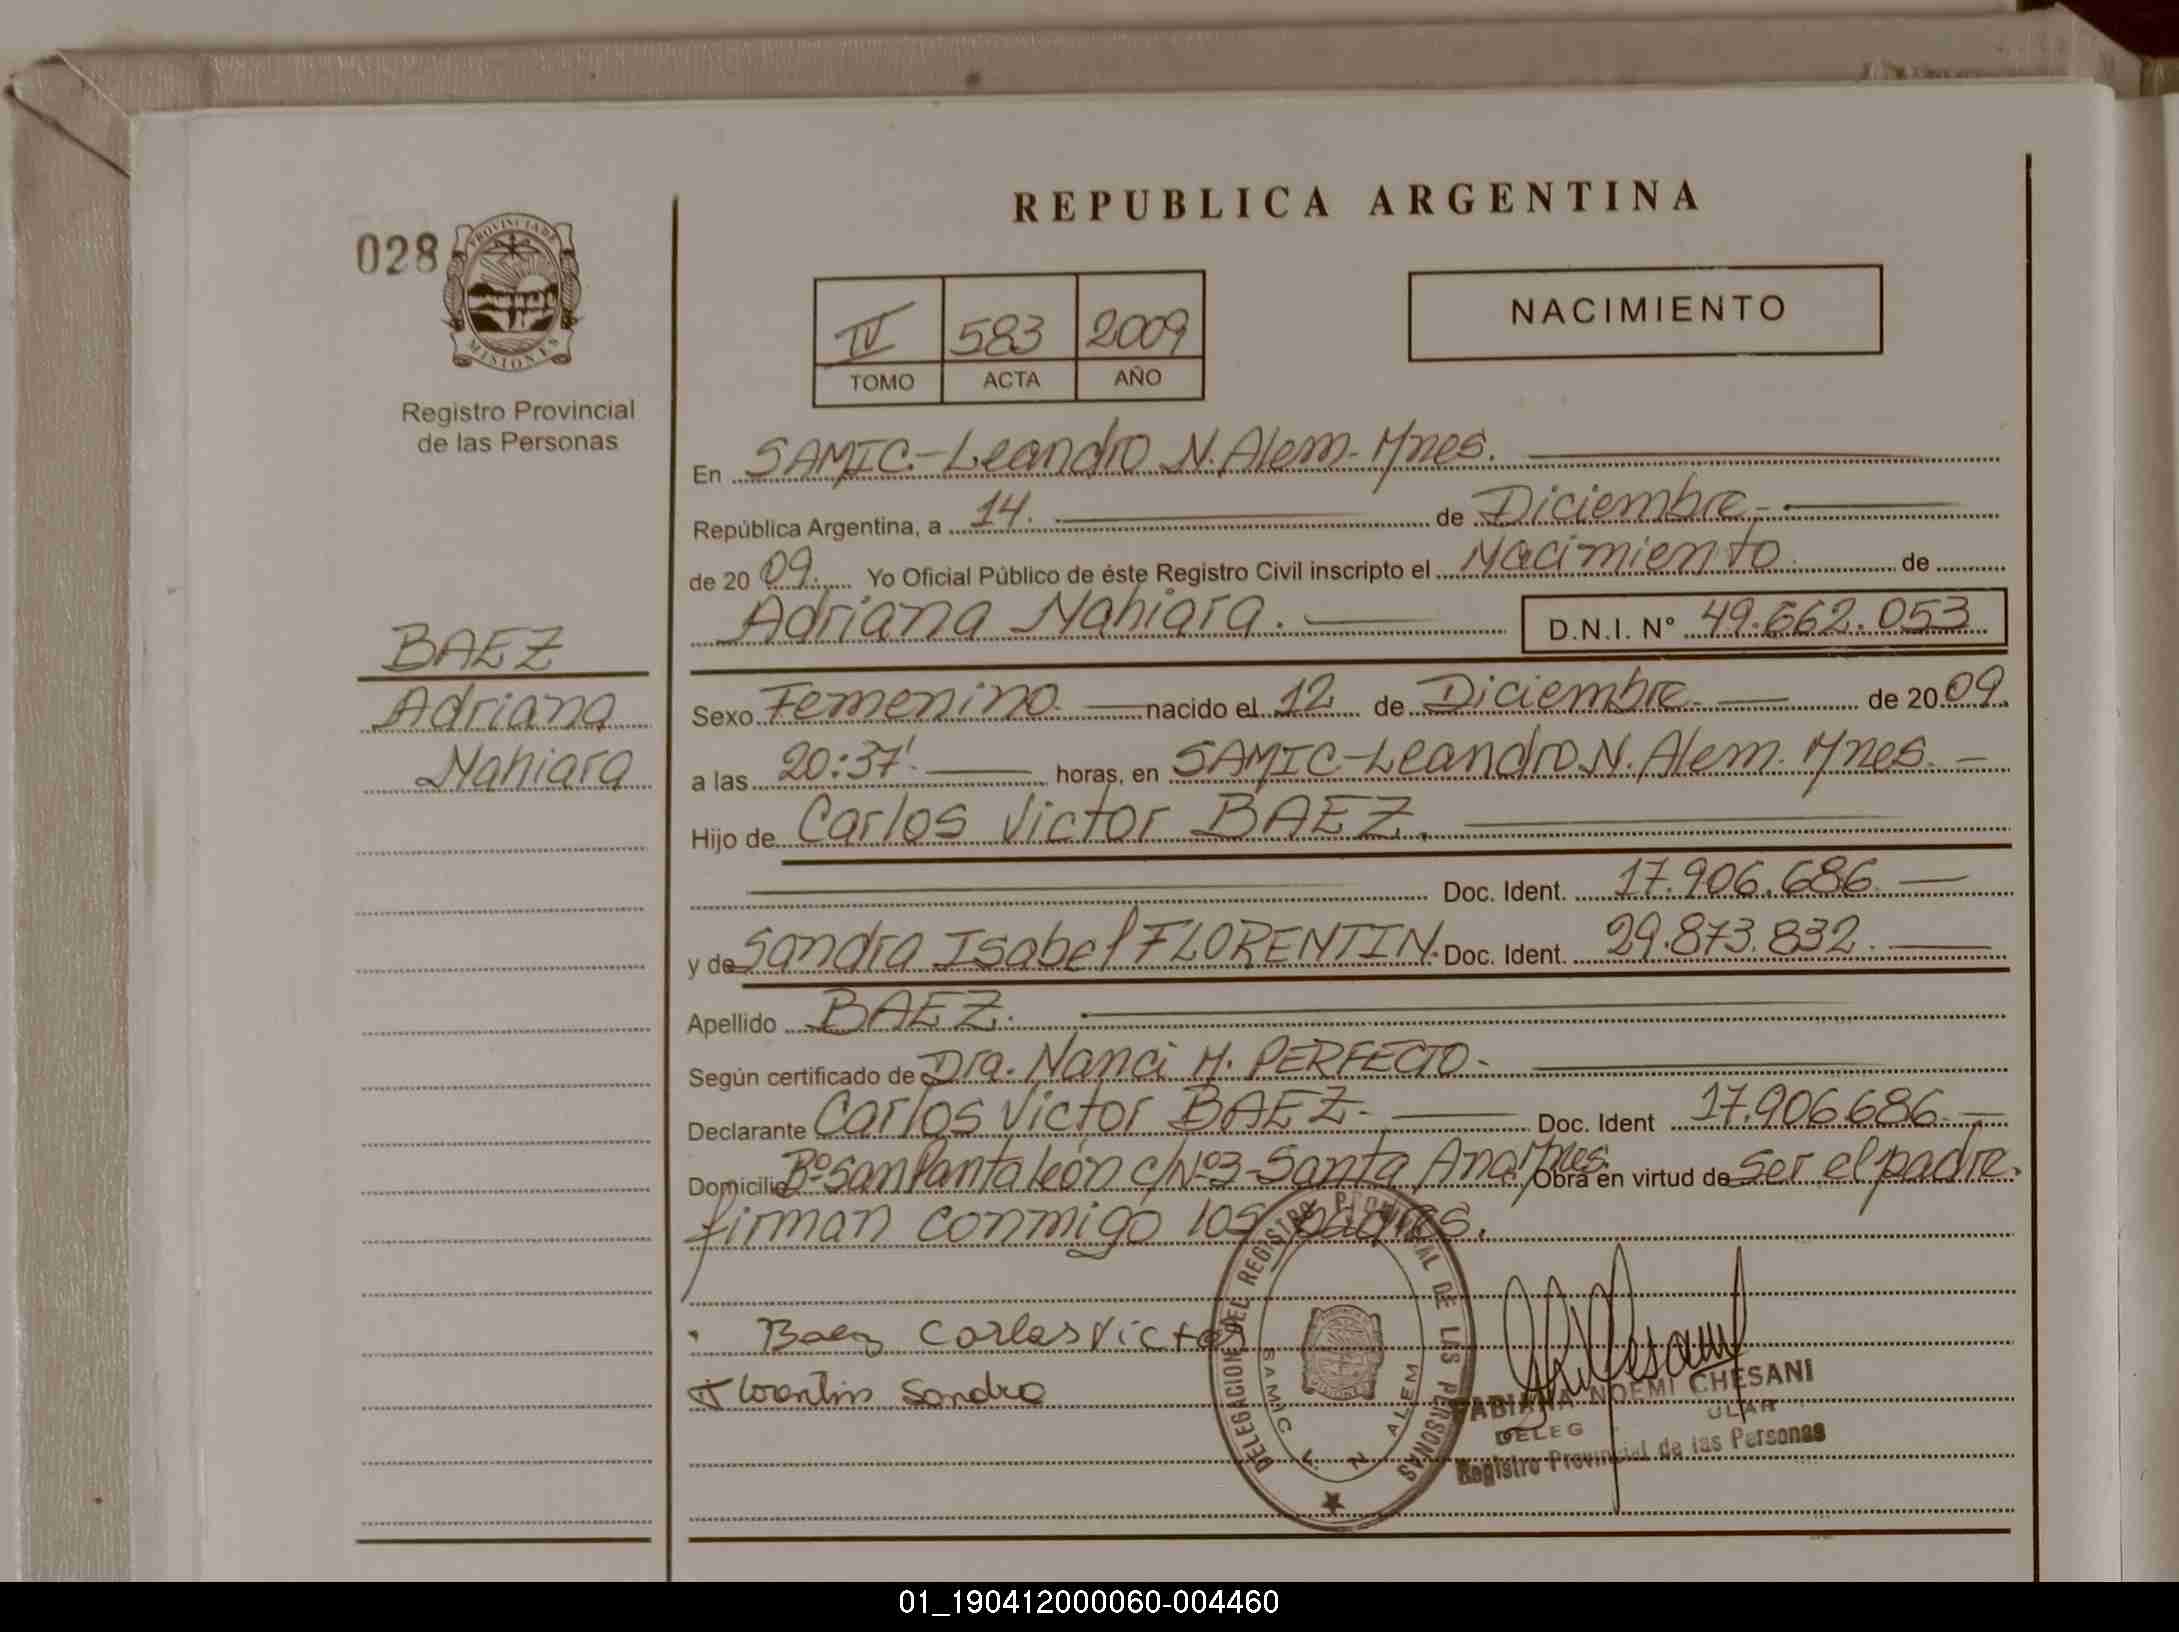 REPUBLICA ARGENTINA
028
PROVINCIA DE
MISIONES
NACIMIENTO
IV 583 2009
TOMO ACTA AÑO
Registro Provincial
de las Personas
En SAMIC.-Leandro N. Alem- Mnes.
República Argentina, a 14. de Diciembre.-
de 20 09. Yo Oficial Público de éste Registro Civil inscripto el Nacimiento de
Adriana Nahiara. D.N.I. N° 49.662.053
BAEZ
Adriana
Nahiara
Sexo Femenino nacido el 12 de Diciembre. de 20 09.
a las 20:37' horas, en SAMIC-Leandro N. Alem. Mnes.
Hijo de Carlos Victor BAEZ.
Doc. Ident. 17.906.686
y de Sandra Isabel FLORENTIN. Doc. Ident. 29.873.832.
Apellido BAEZ.
Según certificado de Dra. Nanci M. PERFECTO-
Declarante Carlos Victor BAEZ- Doc. Ident 17.906.686.
Domicilio B° San Pantaleón c/N°3-Santa Ana. Mnes. Obra en virtud de ser el padre.
firman conmigo los padres.
Baez Carlos Victor
Florentin Sandra
DELEGACION DEL REGISTRO PROVINCIAL DE LAS PERSONAS
SAMIC L. N. ALEM
FABIANA NOEMI CHESANI
DELEG ULAR
Registro Provincial de las Personas
01_190412000060-004460